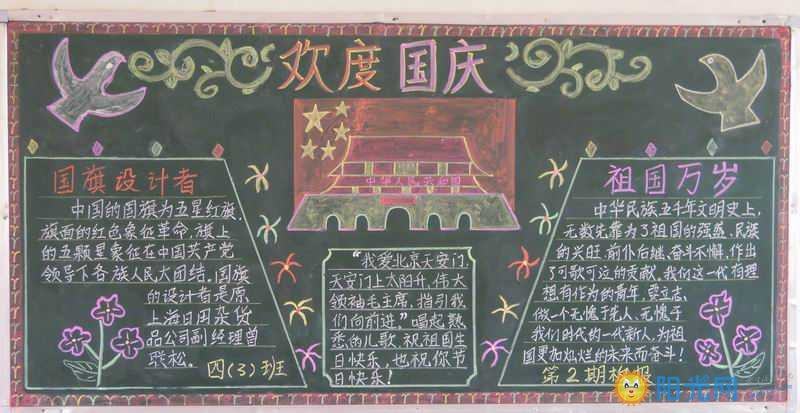 欢度国庆
国旗设计者
中国的国旗为五星红旗,
旗面的红色象征革命,旗上
的五颗星象征在中国共产党
领导下各族人民大团结,国旗
的设计者是原
上海日用杂货
品公司副经理曾
联松。
四(3)班
中华人民共和国
"我爱北京天安门,
天安门上太阳升,伟大
领袖毛主席,指引我
们向前进。"唱起熟
悉的儿歌 祝祖国生
日快乐,也祝你节
日快乐!
祖国万岁
中华民族五千年文明史上,
无数先辈为了祖国的强盛、民族
的兴旺,前仆后继、奋斗不懈,作出
了可歌可泣的贡献,我们这一代有理
想有作为的青年,要立志,
做一个无愧于先人,无愧于
我们时代的一代新人,为祖
国更加灿烂的未来而奋斗!
第2期板报
阳光网